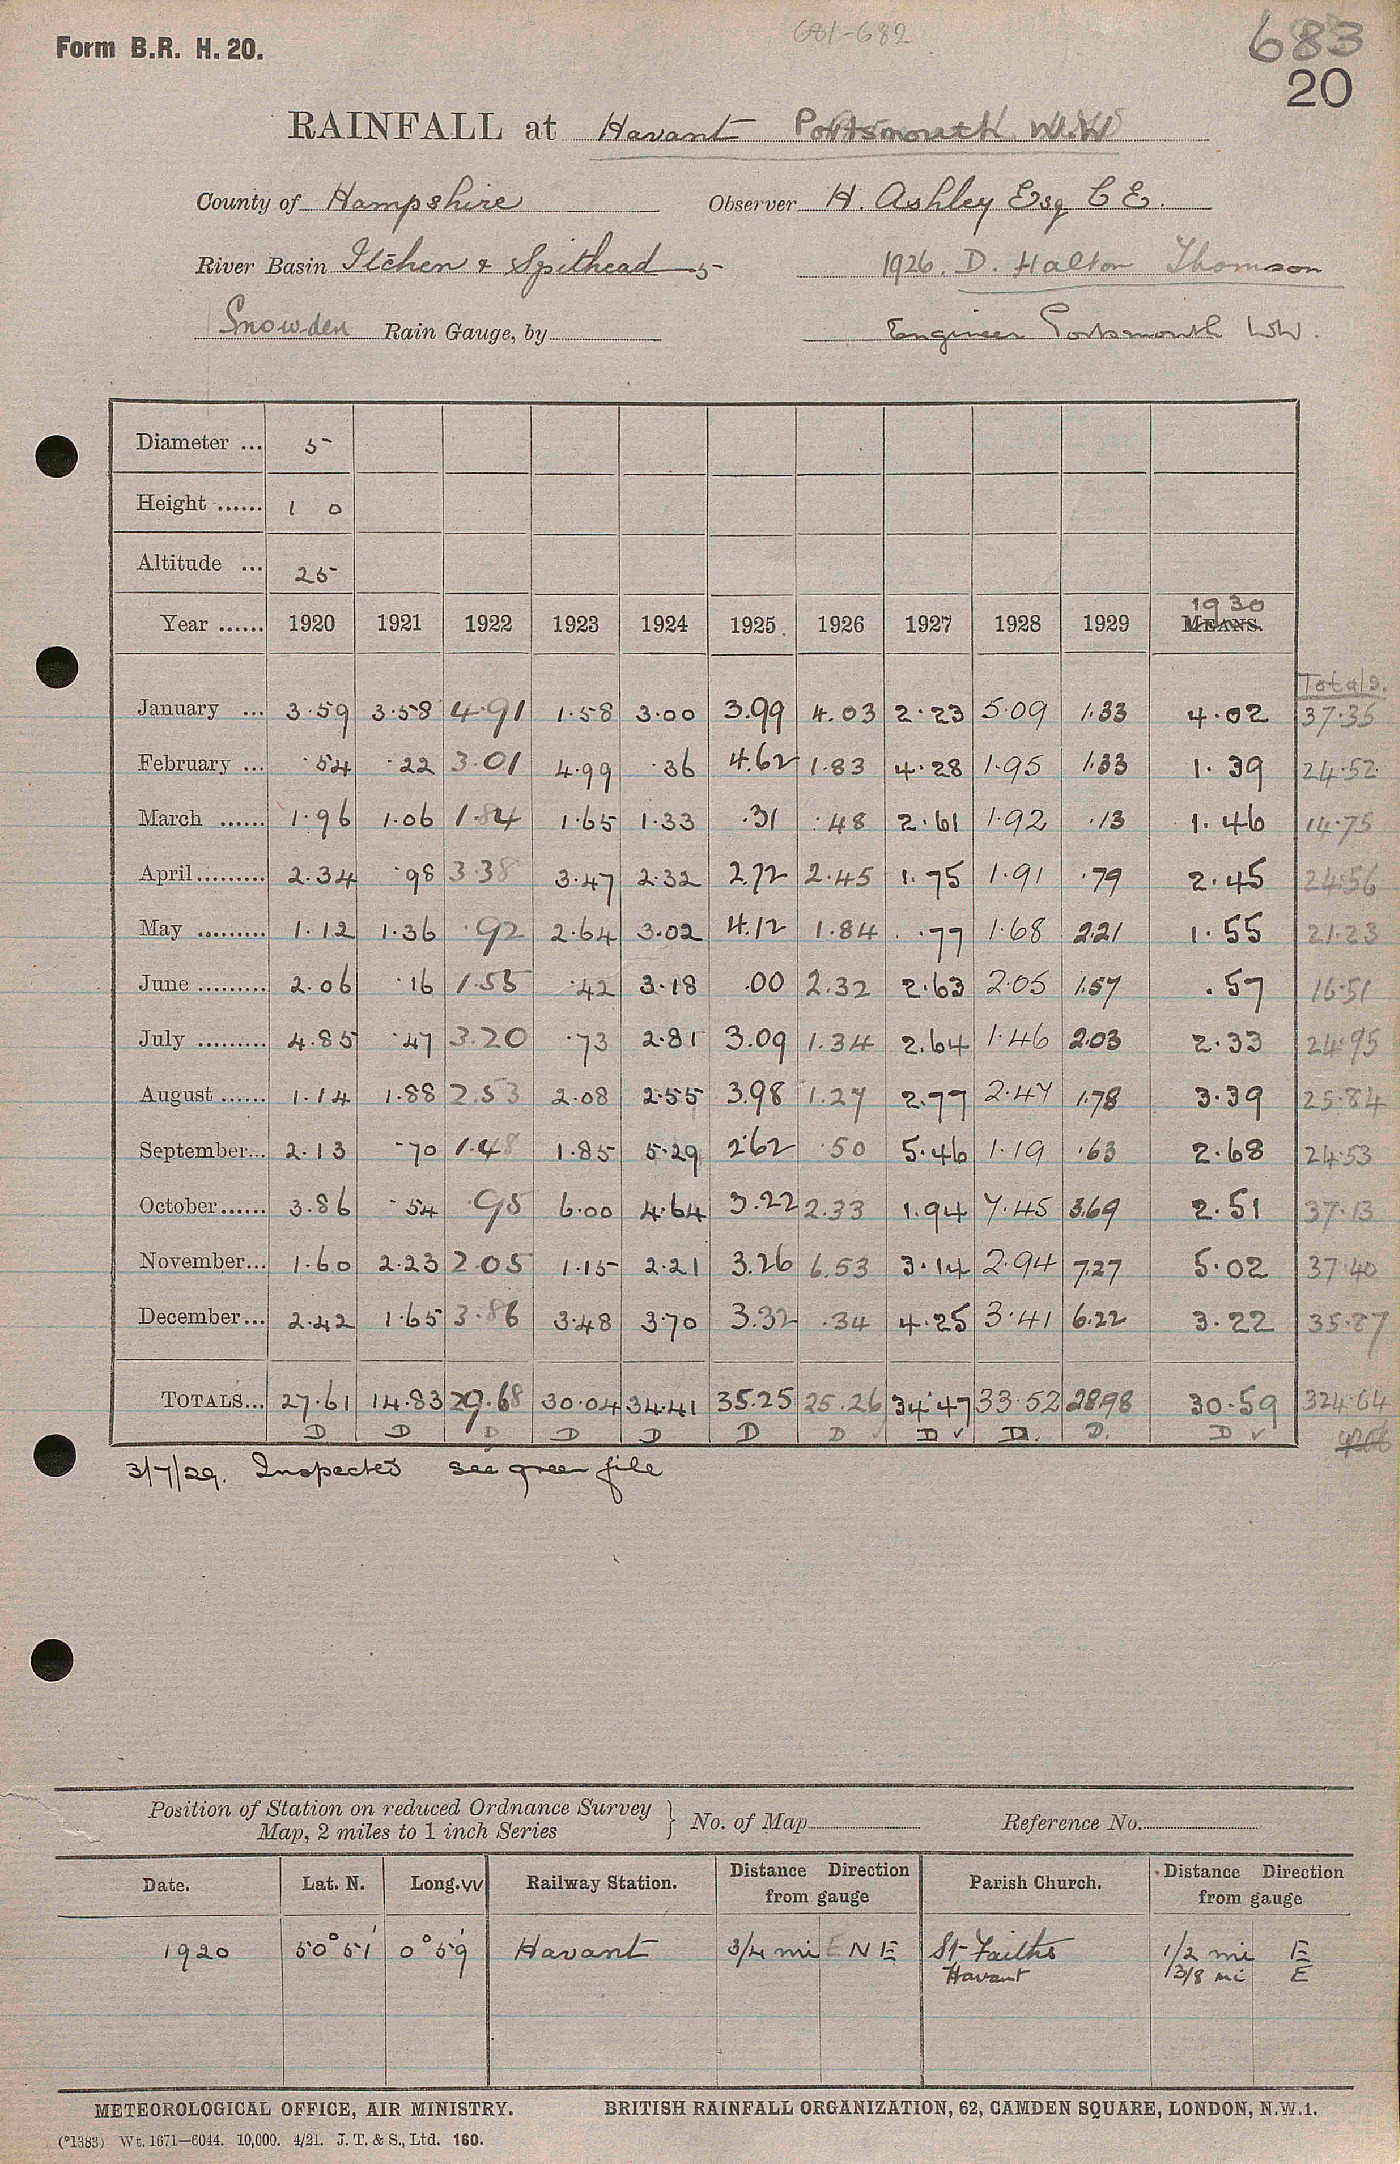 681-682
683
Form B.R. H. 20.
20
RAINFALL at Havant Portsmouth W.W
County of Hampshire Observer H. Ashley Esq C E.
River Basin Itchen & Spithead 5 1926. D. Halton Thomson
Snowden Rain Gauge, by Engineer Portsmouth WW.
Diameter ... 5
Height ...... 1 0
Altitude ... 25
1930
Year ...... 1920 1921 1922 1923 1924 1925 1926 1927 1928 1929 MEANS.
Totals.
January ... 3·59 3·58 4·91 1·58 3·00 3.99 4.03 2·23 5·09 1.33 4·02 37·35
February ... ·54 ·22 3·01 4·99 ·36 4.62 1·83 4·28 1·95 1.33 1·39 24·52
March ...... 1·96 1·06 1·84 1·65 1·33 ·31 ·48 2·61 1·92 ·13 1·46 14·75
April......... 2·34 ·98 3·38 3·47 2·32 2.72 2·45 1·75 1·91 ·79 2·45 24·56
May ......... 1·12 1·36 ·92 2·64 3·02 4.12 1·84 ·77 1·68 2.21 1·55 21·23
June ......... 2·06 ·16 1·55 ·42 3·18 .00 2·32 2·63 2·05 1.57 .57 16·51
July ......... 4·85 ·47 3·20 ·73 2·81 3.09 1.34 2.64 1·46 2.03 2·33 24·95
August ...... 1·14 1·88 2·53 2·08 2·55 3.98 1·27 2·77 2·47 1.78 3·39 25·84
September... 2·13 ·70 1·48 1·85 5·29 2.62 ·50 5·46 1·19 ·63 2·68 24·53
October...... 3·86 ·54 ·95 6·00 4·64 3.22 2·33 1.94 7·45 3.69 2·51 37·13
November... 1·60 2·23 2·05 1·15 2·21 3.26 6.53 3·14 2·94 7.27 5·02 37·40
December... 2·42 1·65 3·86 3·48 3·70 3.32 ·34 4·25 3·41 6.22 3·22 35·87
TOTALS... 27·61 14·83 29·68 30·04 34·41 35·25 25·26 34·47 33·52 28.98 30·59 324·64
D D D D D D D ✓ D ✓ D. D. D ✓
3/7/29. Inspected see green file
Position of Station on reduced Ordnance Survey
Map, 2 miles to 1 inch Series } No. of Map Reference No.
Date. Lat. N. Long. W Railway Station. Distance Direction from gauge Parish Church. Distance Direction from gauge
1920 50° 51' 0° 59' Havant 3/4 mi E N E St Faiths 1/2 mi E
Havant 13/8 mi E
METEOROLOGICAL OFFICE, AIR MINISTRY. BRITISH RAINFALL ORGANIZATION, 62, CAMDEN SQUARE, LONDON, N.W.1.
(*1383) Wt. 1671—6044. 10,000. 4/21. J. T. & S., Ltd. 160.